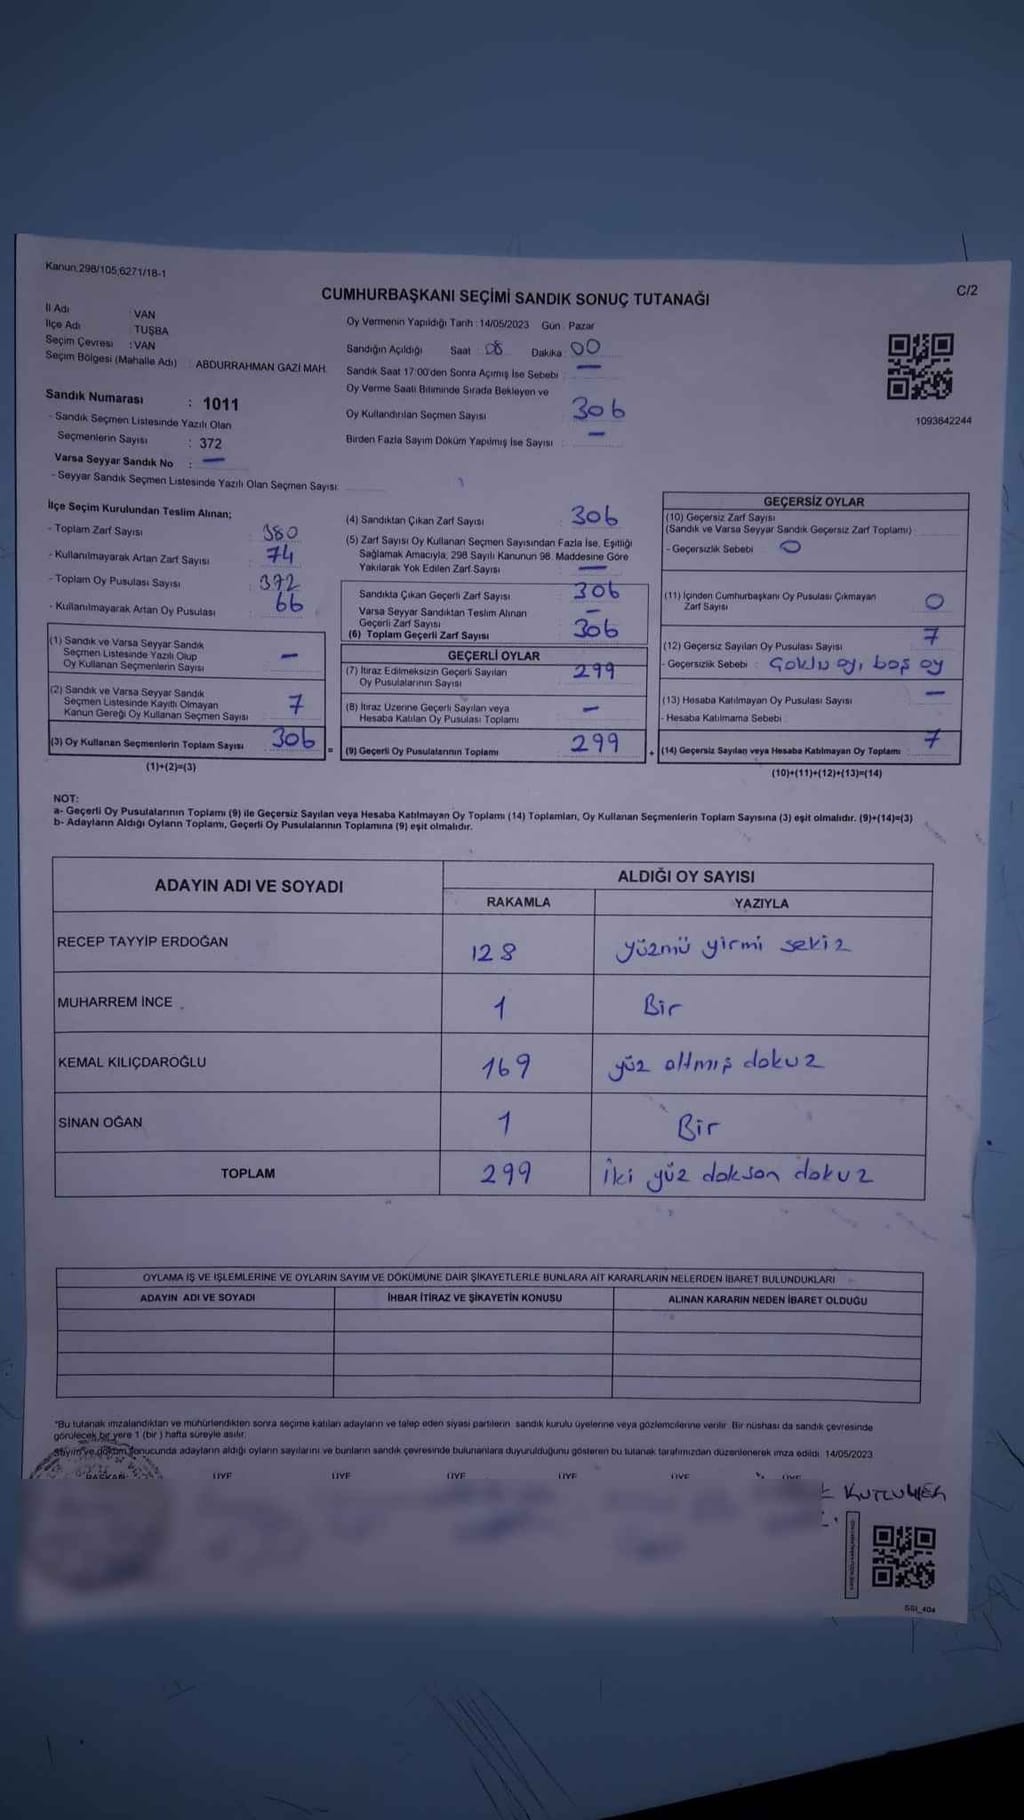 Kanun.298/105,6271/18-1
C/2
CUMHURBAŞKANI SEÇİMİ SANDIK SONUÇ TUTANAĞI
İl Adı : VAN
İlçe Adı : TUŞBA
Seçim Çevresi : VAN
Seçim Bölgesi (Mahalle Adı) : ABDURRAHMAN GAZİ MAH.
Sandık Numarası : 1011
- Sandık Seçmen Listesinde Yazılı Olan
Seçmenlerin Sayısı : 372
Varsa Seyyar Sandık No : -
- Seyyar Sandık Seçmen Listesinde Yazılı Olan Seçmen Sayısı:
Oy Vermenin Yapıldığı Tarih : 14/05/2023 Gün : Pazar
Sandığın Açıldığı Saat : 08 Dakika : 00
Sandık Saat 17:00'den Sonra Açımış İse Sebebi : -
Oy Verme Saati Bitiminde Sırada Bekleyen ve
Oy Kullandırılan Seçmen Sayısı 306
Birden Fazla Sayım Döküm Yapılmış İse Sayısı : -
1093842244
İlçe Seçim Kurulundan Teslim Alınan;
- Toplam Zarf Sayısı : 380
- Kullanılmayarak Artan Zarf Sayısı : 74
- Toplam Oy Pusulası Sayısı : 372
- Kullanılmayarak Artan Oy Pusulası : 66
(1) Sandık ve Varsa Seyyar Sandık
Seçmen Listesinde Yazılı Olup
Oy Kullanan Seçmenlerin Sayısı -
(2) Sandık ve Varsa Seyyar Sandık
Seçmen Listesinde Kayıtlı Olmayan
Kanun Gereği Oy Kullanan Seçmen Sayısı 7
(3) Oy Kullanan Seçmenlerin Toplam Sayısı 306
(1)+(2)=(3)
(4) Sandıktan Çıkan Zarf Sayısı : 306
(5) Zarf Sayısı Oy Kullanan Seçmen Sayısından Fazla İse, Eşitliği
Sağlamak Amacıyla, 298 Sayılı Kanunun 98. Maddesine Göre
Yakılarak Yok Edilen Zarf Sayısı : -
Sandıkta Çıkan Geçerli Zarf Sayısı 306
Varsa Seyyar Sandıktan Teslim Alınan
Geçerli Zarf Sayısı -
(6) Toplam Geçerli Zarf Sayısı 306
GEÇERLİ OYLAR
(7) İtiraz Edilmeksizin Geçerli Sayılan
Oy Pusulalarının Sayısı 299
(8) İtiraz Üzerine Geçerli Sayılan veya
Hesaba Katılan Oy Pusulası Toplamı -
(9) Geçerli Oy Pusulalarının Toplamı 299
GEÇERSİZ OYLAR
(10) Geçersiz Zarf Sayısı
(Sandık ve Varsa Seyyar Sandık Geçersiz Zarf Toplamı) :
- Geçersizlik Sebebi : 0
(11) İçinden Cumhurbaşkanı Oy Pusulası Çıkmayan
Zarf Sayısı 0
(12) Geçersiz Sayılan Oy Pusulası Sayısı 7
- Geçersizlik Sebebi : Çoklu oy, boş oy
(13) Hesaba Katılmayan Oy Pusulası Sayısı -
- Hesaba Katılmama Sebebi
(14) Geçersiz Sayılan veya Hesaba Katılmayan Oy Toplamı 7
(10)+(11)+(12)+(13)=(14)
NOT:
a- Geçerli Oy Pusulalarının Toplamı (9) ile Geçersiz Sayılan veya Hesaba Katılmayan Oy Toplamı (14) Toplamları, Oy Kullanan Seçmenlerin Toplam Sayısına (3) eşit olmalıdır. (9)+(14)=(3)
b- Adayların Aldığı Oyların Toplamı, Geçerli Oy Pusulalarının Toplamına (9) eşit olmalıdır.
ADAYIN ADI VE SOYADI
ALDIĞI OY SAYISI
RAKAMLA YAZIYLA
RECEP TAYYİP ERDOĞAN 128 yüzmü yirmi sekiz
MUHARREM İNCE 1 Bir
KEMAL KILIÇDAROĞLU 169 yüz altmış dokuz
SİNAN OĞAN 1 Bir
TOPLAM 299 İki yüz doksan dokuz
OYLAMA İŞ VE İŞLEMLERİNE VE OYLARIN SAYIM VE DÖKÜMÜNE DAİR ŞİKAYETLERLE BUNLARA AİT KARARLARIN NELERDEN İBARET BULUNDUKLARI
ADAYIN ADI VE SOYADI İHBAR İTİRAZ VE ŞİKAYETİN KONUSU ALINAN KARARIN NEDEN İBARET OLDUĞU
"Bu tutanak imzalandıktan ve mühürlendikten sonra seçime katılan adayların ve talep eden siyasi partilerin sandık kurulu üyelerine veya gözlemcilerine verilir. Bir nüshası da sandık çevresinde
görülecek bir yere 1 (bir) hafta süreyle asılır.
Sayım ve döküm sonucunda adayların aldığı oyların sayılarını ve bunların sandık çevresinde bulunanlara duyurulduğunu gösteren bu tutanak tarafımızdan düzenlenerek imza edildi. 14/05/2023
BAŞKAN ÜYE ÜYE ÜYE ÜYE ÜYE ÜYE